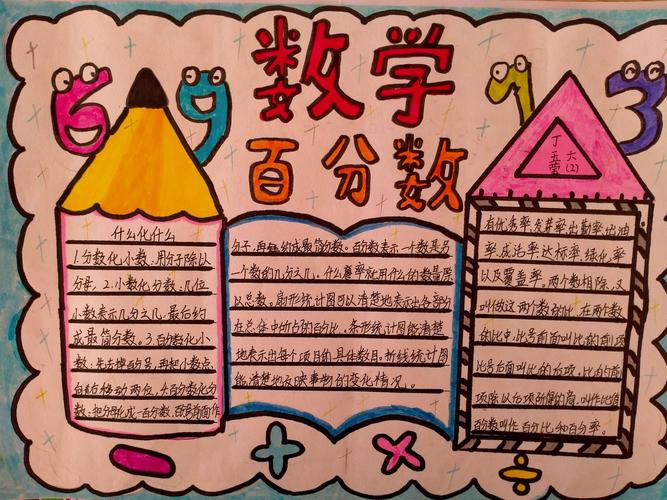 数学
百分数
6 9
1 3
丁
五 六
莹 (2)
什么化什么
1.分数化小数,用分子除以
分母。2.小数化分数:几位
小数表示几分之几,最后约
成最简分数。3.百分数化小
数:先去掉百分号,再把小数点
向左移动两位。4.百分数化分
数:把分母化成一百分数,在百分号前面作
分子,再约成最简分数。百分数表示一个数是另
一个数的几分之几。什么率就用什么的数量除
以总数。扇形统计图可以清楚地表示出各部分
在总体中所占的百分比,条形统计图能清楚
地表示出每个项目的具体数目,折线统计图
能清楚地反映事物的变化情况。
有优秀率发芽率出勤率出油
率成活率达标率绿化率
以及覆盖率。两个数相除,又
叫做这两个数的比,在两个数
的比中,比号前面叫比的前项
比号后面叫比的后项,比的前
项除以后项所得的商,叫作比值
百分数叫作百分比,和百分率。
− + × ÷